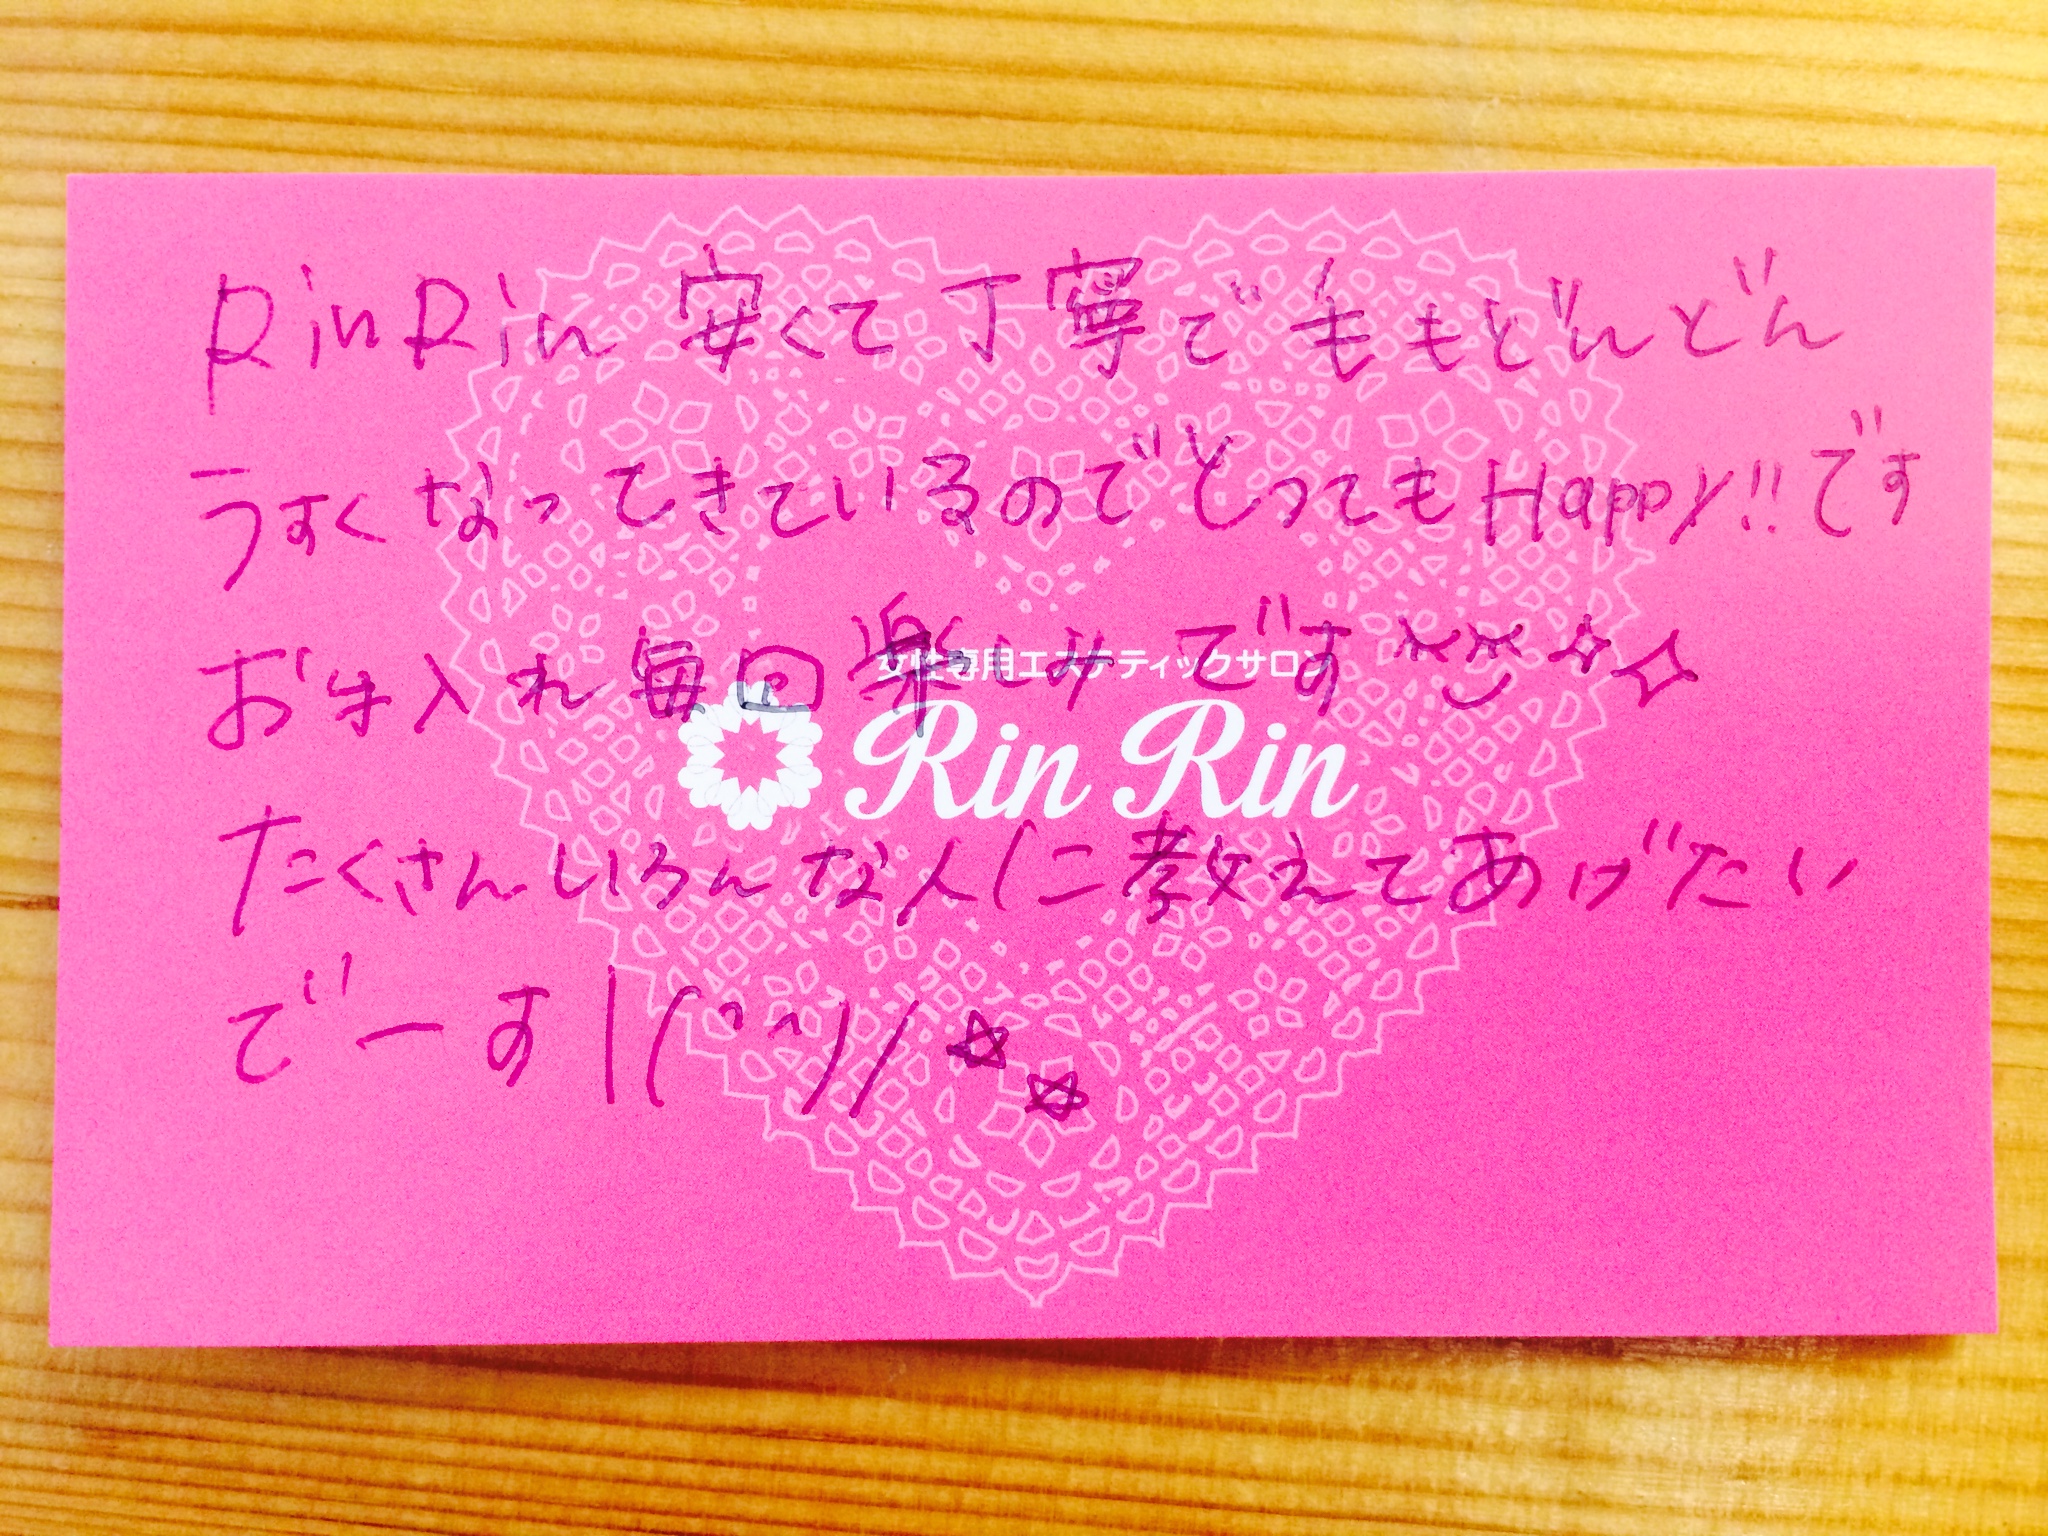 RinRin 安くて丁寧で毛もどんどん
うすくなってきているのでとってもHappy!!です
お手入れ毎回楽しみです
女性専用エステティックサロン
Rin Rin
たくさんいろんな人に教えてあげたい
でーす\(^^)/☆☆